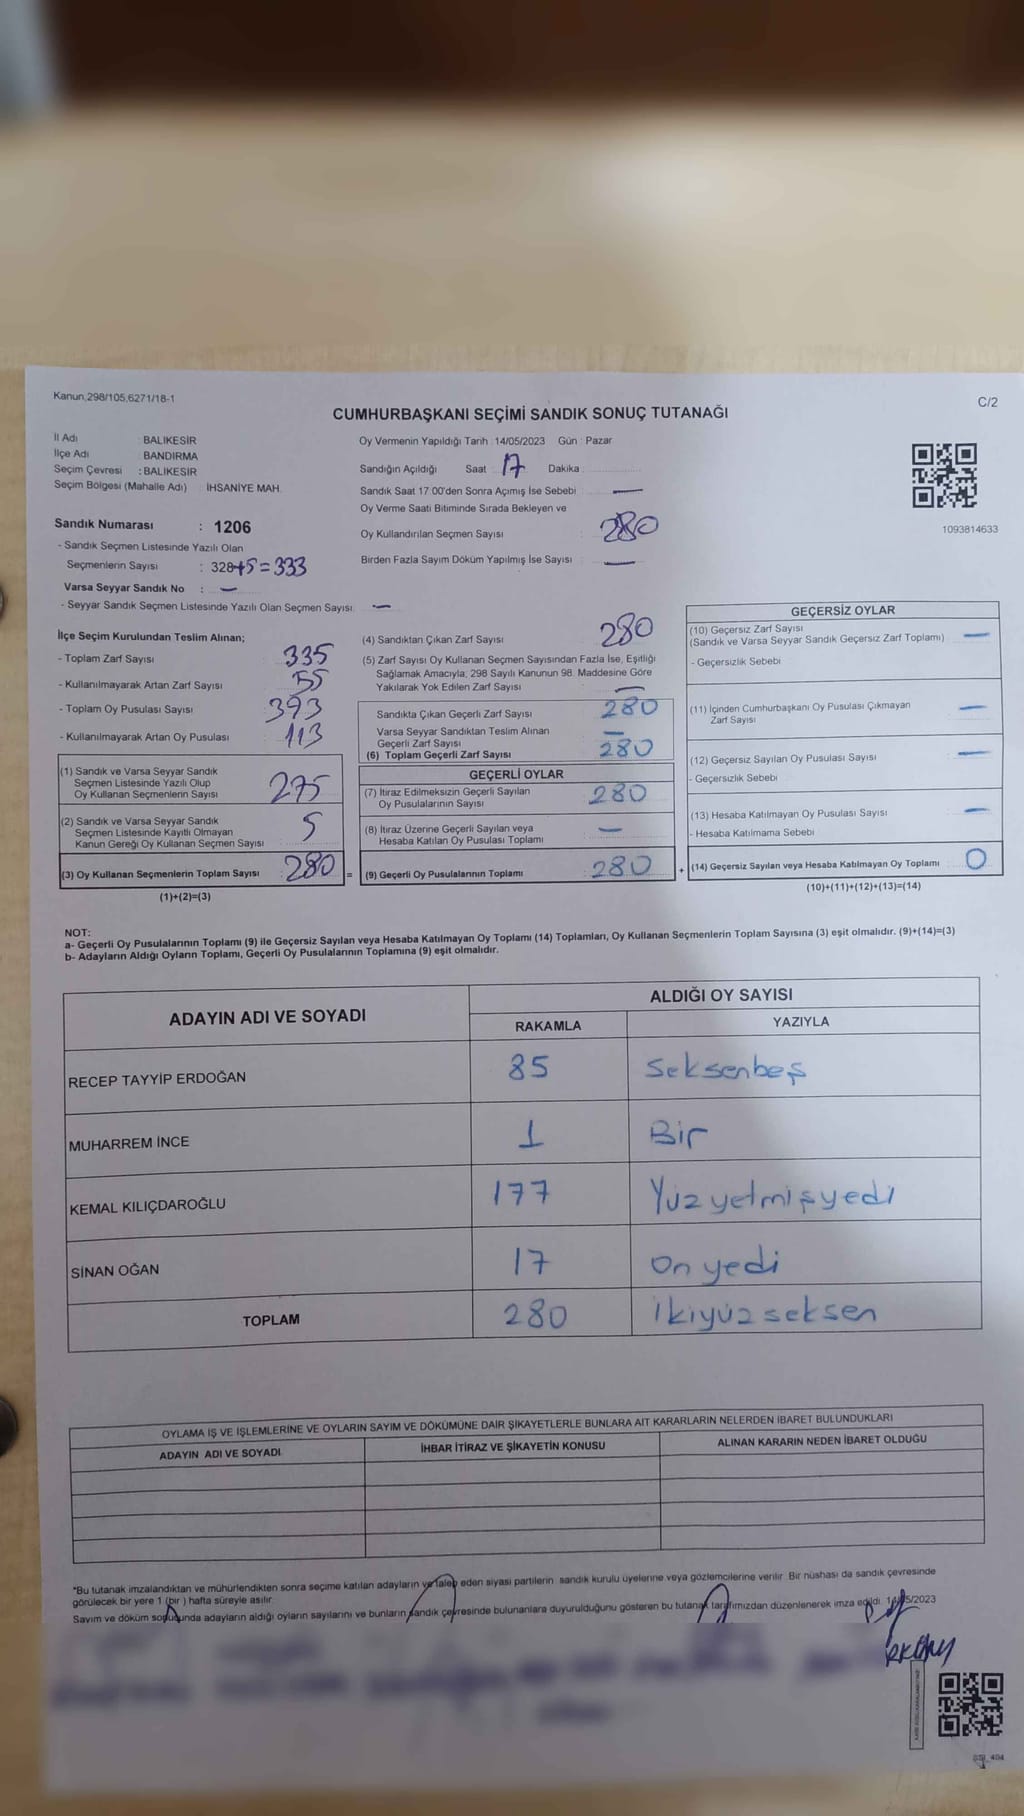 Kanun,298/105,6271/18-1
C/2
CUMHURBAŞKANI SEÇİMİ SANDIK SONUÇ TUTANAĞI
İl Adı BALIKESİR
İlçe Adı BANDIRMA
Seçim Çevresi : BALIKESİR
Seçim Bölgesi (Mahalle Adı) İHSANİYE MAH.
Oy Vermenin Yapıldığı Tarih : 14/05/2023 Gün : Pazar
Sandığın Açıldığı Saat 17 Dakika
Sandık Saat 17 00'den Sonra Açımış İse Sebebi : —
Oy Verme Saati Bitiminde Sırada Bekleyen ve
Oy Kullandırılan Seçmen Sayısı : 280
Birden Fazla Sayım Döküm Yapılmış İse Sayısı : —
1093814633
Sandık Numarası : 1206
- Sandık Seçmen Listesinde Yazılı Olan
Seçmenlerin Sayısı : 328+5=333
Varsa Seyyar Sandık No : —
- Seyyar Sandık Seçmen Listesinde Yazılı Olan Seçmen Sayısı: —
İlçe Seçim Kurulundan Teslim Alınan;
- Toplam Zarf Sayısı 335
- Kullanılmayarak Artan Zarf Sayısı 55
- Toplam Oy Pusulası Sayısı 393
- Kullanılmayarak Artan Oy Pusulası 113
(1) Sandık ve Varsa Seyyar Sandık
Seçmen Listesinde Yazılı Olup
Oy Kullanan Seçmenlerin Sayısı 275
(2) Sandık ve Varsa Seyyar Sandık
Seçmen Listesinde Kayıtlı Olmayan
Kanun Gereği Oy Kullanan Seçmen Sayısı 5
(3) Oy Kullanan Seçmenlerin Toplam Sayısı 280 =
(1)+(2)=(3)
(4) Sandıktan Çıkan Zarf Sayısı 280
(5) Zarf Sayısı Oy Kullanan Seçmen Sayısından Fazla İse, Eşitliği
Sağlamak Amacıyla, 298 Sayılı Kanunun 98. Maddesine Göre
Yakılarak Yok Edilen Zarf Sayısı —
Sandıkta Çıkan Geçerli Zarf Sayısı 280
Varsa Seyyar Sandıktan Teslim Alınan
Geçerli Zarf Sayısı —
(6) Toplam Geçerli Zarf Sayısı 280
GEÇERLİ OYLAR
(7) İtiraz Edilmeksizin Geçerli Sayılan
Oy Pusulalarının Sayısı 280
(8) İtiraz Üzerine Geçerli Sayılan veya
Hesaba Katılan Oy Pusulası Toplamı —
(9) Geçerli Oy Pusulalarının Toplamı : 280 +
GEÇERSİZ OYLAR
(10) Geçersiz Zarf Sayısı
(Sandık ve Varsa Seyyar Sandık Geçersiz Zarf Toplamı) —
- Geçersizlik Sebebi
(11) İçinden Cumhurbaşkanı Oy Pusulası Çıkmayan
Zarf Sayısı —
(12) Geçersiz Sayılan Oy Pusulası Sayısı —
- Geçersizlik Sebebi
(13) Hesaba Katılmayan Oy Pusulası Sayısı —
- Hesaba Katılmama Sebebi
(14) Geçersiz Sayılan veya Hesaba Katılmayan Oy Toplamı 0
(10)+(11)+(12)+(13)=(14)
NOT:
a- Geçerli Oy Pusulalarının Toplamı (9) ile Geçersiz Sayılan veya Hesaba Katılmayan Oy Toplamı (14) Toplamları, Oy Kullanan Seçmenlerin Toplam Sayısına (3) eşit olmalıdır. (9)+(14)=(3)
b- Adayların Aldığı Oyların Toplamı, Geçerli Oy Pusulalarının Toplamına (9) eşit olmalıdır.
ADAYIN ADI VE SOYADI
ALDIĞI OY SAYISI
RAKAMLA YAZIYLA
RECEP TAYYİP ERDOĞAN 85 Seksenbeş
MUHARREM İNCE 1 Bir
KEMAL KILIÇDAROĞLU 177 Yüz yetmiş yedi
SİNAN OĞAN 17 On yedi
TOPLAM 280 İkiyüz seksen
OYLAMA İŞ VE İŞLEMLERİNE VE OYLARIN SAYIM VE DÖKÜMÜNE DAİR ŞİKAYETLERLE BUNLARA AİT KARARLARIN NELERDEN İBARET BULUNDUKLARI
ADAYIN ADI VE SOYADI İHBAR İTİRAZ VE ŞİKAYETİN KONUSU ALINAN KARARIN NEDEN İBARET OLDUĞU
*Bu tutanak imzalandıktan ve mühürlendikten sonra seçime katılan adayların ve talep eden siyasi partilerin sandık kurulu üyelerine veya gözlemcilerine verilir. Bir nüshası da sandık çevresinde
görülecek bir yere 1 (bir ) hafta süreyle asılır.
Sayım ve döküm sonucunda adayların aldığı oyların sayılarını ve bunların sandık çevresinde bulunanlara duyurulduğunu gösteren bu tutanak tarafımızdan düzenlenerek imza edildi. 14/05/2023